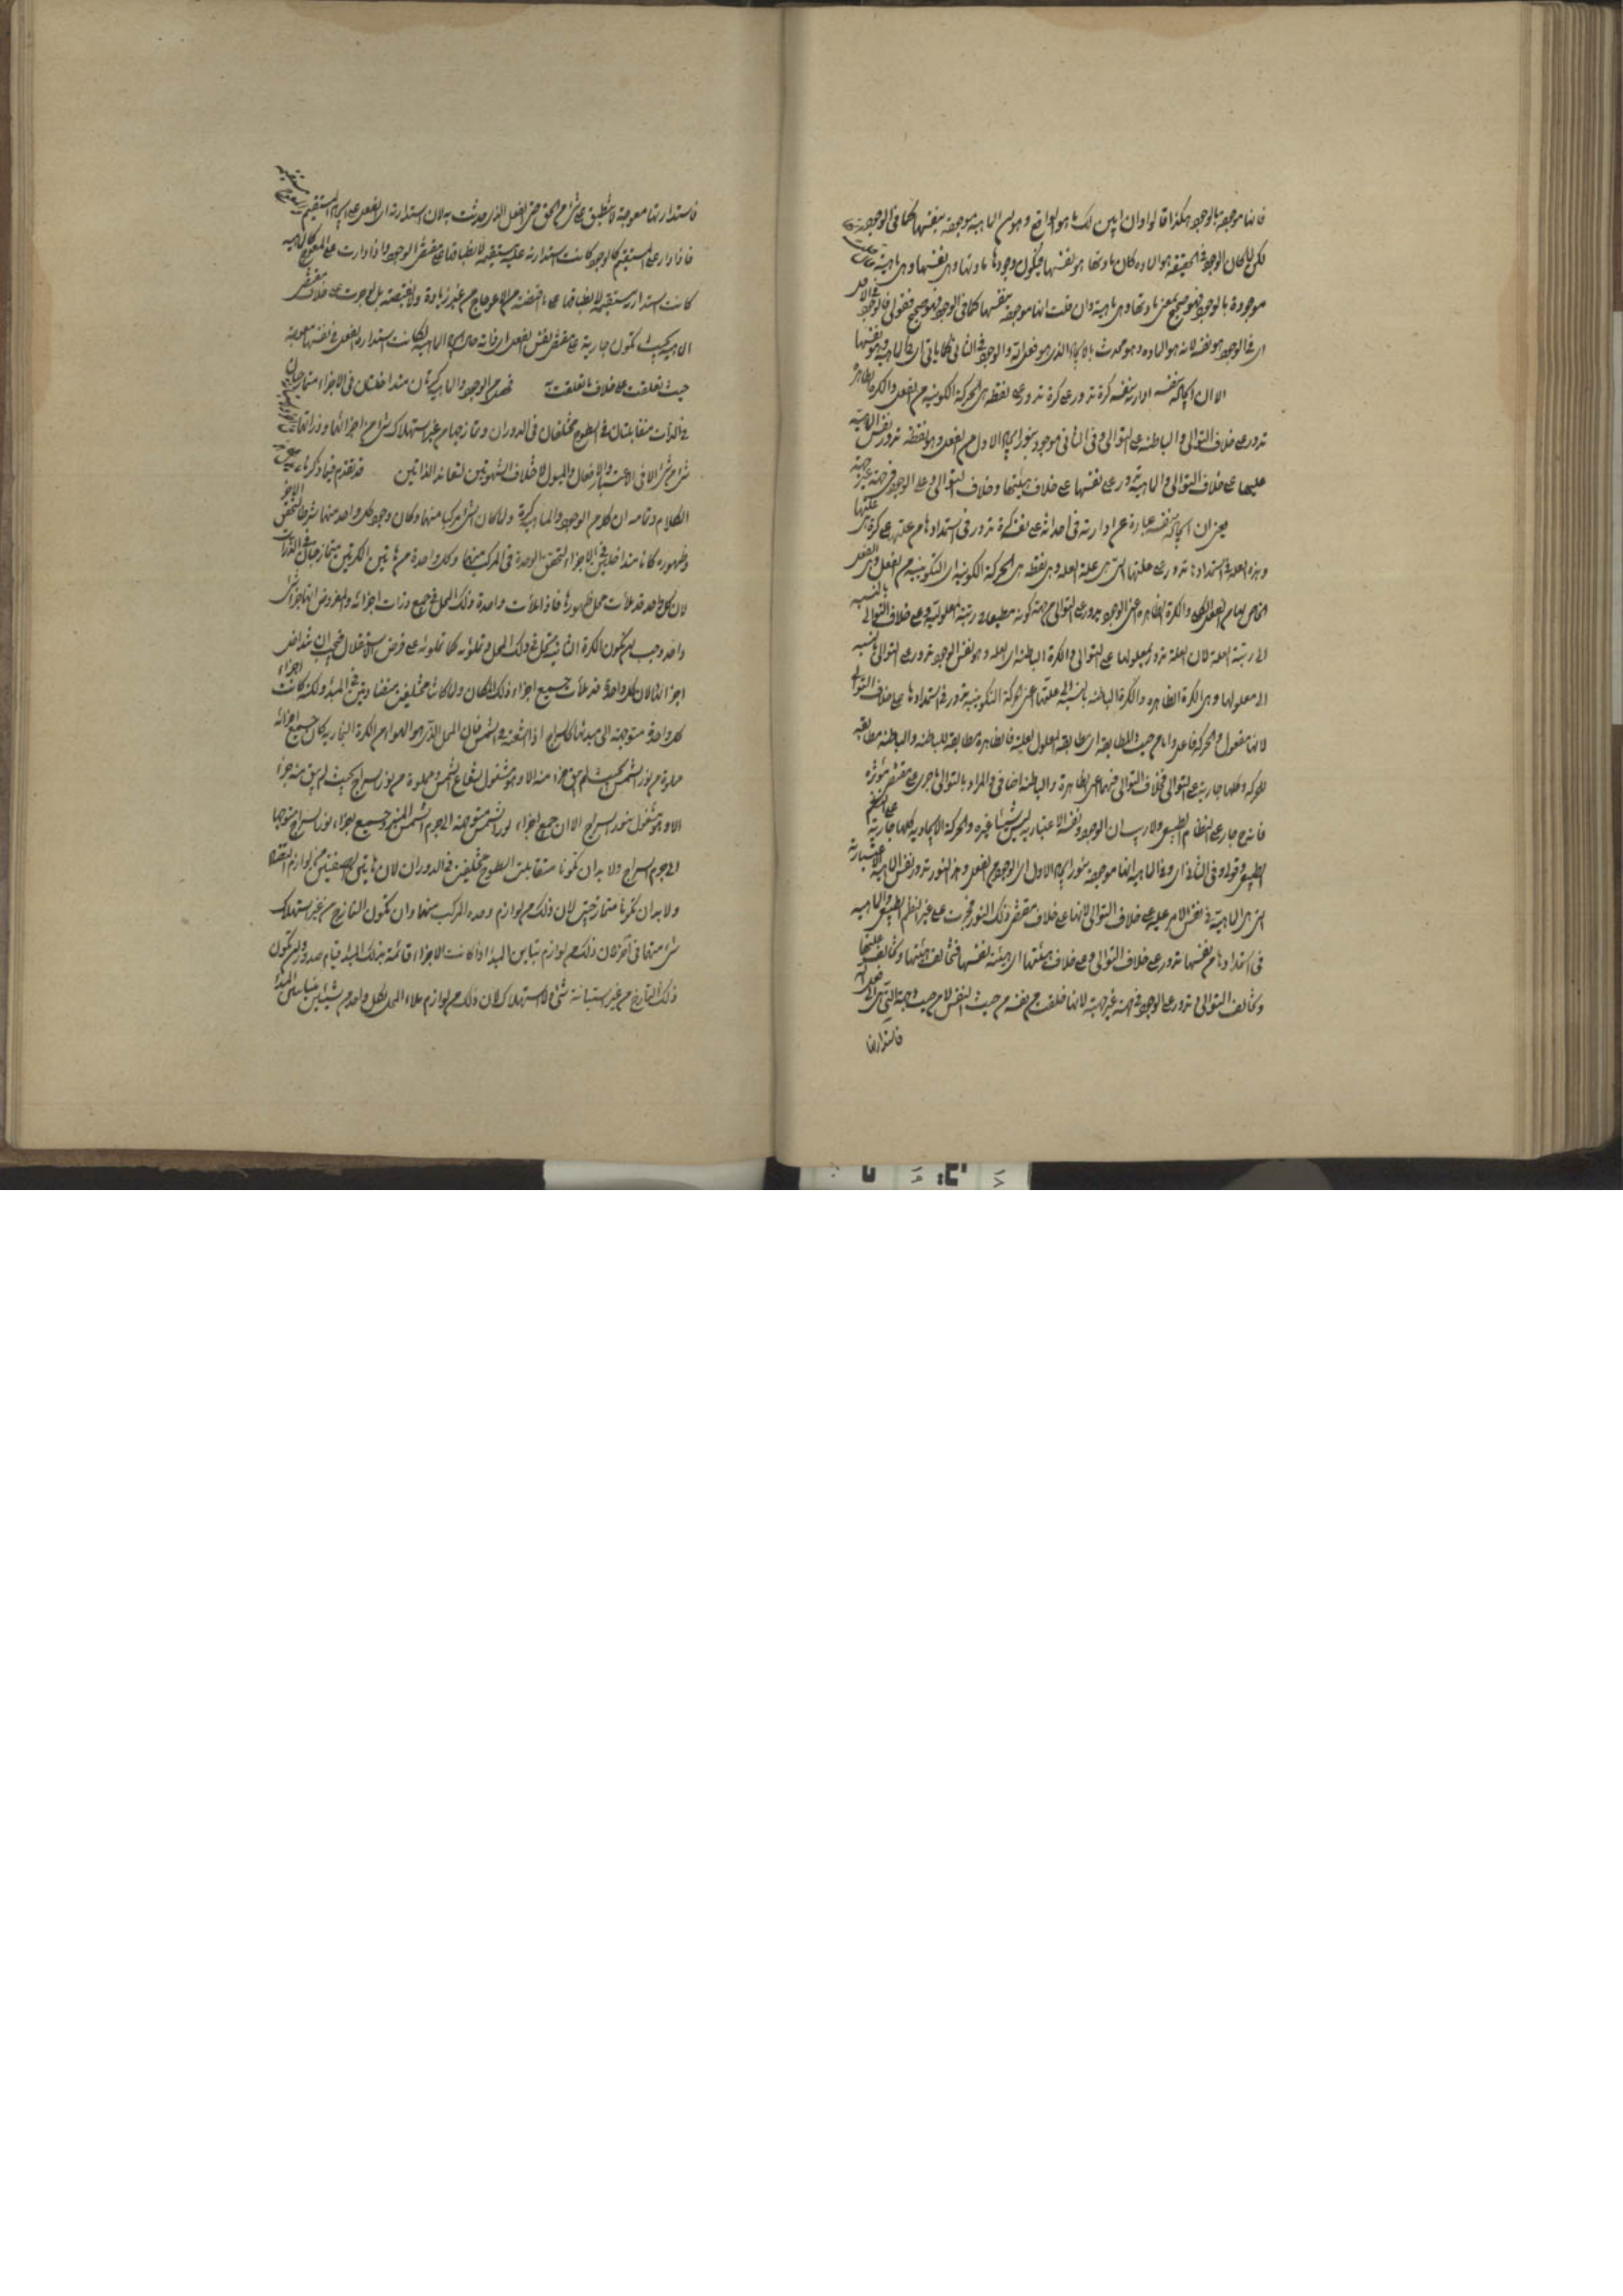 فانها موجودة بالوجود هكذا قالوا وان ابين لك ما هو الواقع وهو ان الماهية موجودة بنفسها كما في الوجود
لكن لما كان الوجود في الحقيقة هو المادة كان مادتها هو نفسها فيكون وجودها مادتها وهي نفسها وهي ماهية
موجودة بالوجود فهو صحيح بمعنى مادتها وهي ماهية وان قلت انها موجودة بنفسها كما في الوجود فهو صحيح فقولي فالوجود
اي في الوجود هو نفسه لانه هو المادة وهو محدث بالايجاد الذي هو فعل الله والوجود في الثاني كما ياتي اي في الماهية وهو نفسها
الا ان ايجاده نفسه ادارة نفسه كرة تدور على كرة تدور على نقطة هي الحركة الكونية من الفعل والكرة الظاهرة
تدور على خلاف التوالي والباطنة على التوالي وفي الثاني موجود بنور الايجاد الاول من الفعل وهو نقطة تدور نفس الماهية
عليها على خلاف التوالي والماهية تدور على نفسها على خلاف هيئتها وخلاف التوالي وعلى الوجود في جهة غير جهة
يعني ان ايجاده نفسه عبارة عن ادارته في احداثه على نفسه كرة تدور في استمدادها من علتها على كرة هي علتها
وهذه العلة في استمدادها تدور على علتها التي هي علة العلة وهي نقطة هي الحركة الكونية اي التكوينية من الفعل وهي الفعل
الخاص بها من الفعل الكلي والكرة الظاهرة اعني الوجود يدور على التوالي من جهة كونه مطبعا في رتبة المعلولية وعلى خلاف التوالي بالنسبة
الى رتبة العلة لان العلة تدور بمعلولها على التوالي والكرة الباطنة اي العلة وهو نفس الوجود تدور على التوالي بالنسبة
الى معلولها وهي الكرة الظاهرة والكرة الباطنة بالنسبة الى علتها اعني الحركة التكوينية تدور في استمدادها على خلاف التوالي
لانها مفعول والحركة فاعل واما من حيث المطابقة اي مطابقة المعلول لعلته فالظاهرة مطابقة للباطنة والباطنة مطابقة
للحركة وكلها جارية على التوالي فخلاف التوالي فيهما اعني الظاهرة والباطنة اضافي والمراد بالتوالي ما جرى على مقتضى مؤثره
فانه ح جار على النظام الطبيعي ولا ريب ان الوجود ونفسه الاعتبارية ليس شيئا غيره والحركة الايجادية كلها جارية على النظم
الطبيعي وقوله وفي الثاني اي وفي الماهية انها موجودة بنور الايجاد الاول اي الوجود من الفعل وهذا النور تدور نفس الماهية الاعتبارية
التي هي الماهية في نفس الامر عليه على خلاف التوالي لانها على خلاف مقتضى ذلك النور فجرت على غير النظم الطبيعي والماهية
في استمدادها من نفسها تدور على خلاف التوالي وعلى خلاف هيئتها اي هيئة نفسها فتخالف هيئتها وتخالف علتها
وتخالف التوالي وتدور على الوجود في جهة غير جهته لانها خلقت من نفسه من حيث النفس لا من حيث جهته التي هي الى فعل الله
فاستدارتها
فاستدارتها معوجة لا تنطبق على شيء من الحق حتى الفعل الذي حدثت به لان استدارته اي الفعل على الايجاد المستقيم مستقيمة
فاذا دار على المستقيم كالوجود كانت استدارته عليه مستقيمة لانطباقها على مقتضى الوجود واذا دارت على المعوج كالماهية
كانت استدارته مستقيمة لانطباقها على ما اقتضته من الاعوجاج من غير زيادة ولا نقيصة بل لو جرت على خلاف مقتضى
الماهية بحيث تكون جارية على مقتضى نفس الفعل اي فانه على ايجاد الماهية لكانت استدارة الفعل في نفسها معوجة
حيث تعلقت على خلاف ما تعلقت به فهذا من الوجود والماهية كرتان متداخلتان في الاجزاء متمازجتان
في الذرات متقابلتان في السطوح مختلفتان في الدوران وتمازجهما من غير استهلاك شيء من اجزائهما وذراتهما
شيء من شيء الا في الاعتبار والافعال والميول لاختلاف الشهوتين لتعاند الذاتين قد تقدم فيما ذكرنا
الكلام وتمامه ان كلا من الوجود والماهية كرة ولما كان الشيء مركبا منهما وكان وجود كل واحد منهما شرطا لتحقق الاخر
وظهوره كانا متداخلين في الاجزاء لتحقق الوحدة في المركب منهما وكل واحدة من هاتين الكرتين متمازجتان في الذرات
لان كل واحد قد ملأت محل ظهورها فاذا ملأت واحدة ذلك المحل في جميع ذرات اجزائه والمفروض انها جزء الشيء
واحد وجب ان يكون الكرة الثانية تحل في ذلك المحل وتملؤه كما تملؤه على فرض الاستقلال فيجب ان تتداخل
اجزائهما لان كل واحدة قد ملأت جميع اجزاء ذلك المكان ولما كانتا مختلفتين متضادتين في المبدء ولكنه كانت اجزاء
كل واحدة متوجهة الى مبدئها كالسراج اذا اشعلته في الشمس فان المحل الذي هو الهواء من الكرة البخارية كان جميع اجزائه
مملوة من نور الشمس بحيث لم يبق جزء منه الا وهو مشغول بشعاع الشمس ومملوة من نور السراج بحيث لم يبق منه جزء
الا وهو مشغول بنور السراج الا ان جميع اجزاء نور الشمس متوجهة الى جرم الشمس المنير وجميع اجزاء نور السراج متوجها
الى جرم السراج ولا بد ان تكونا متقابلتي السطوح مختلفتين في الدوران لان هاتين الصفتين من لوازم التضاد
ولا بد ان تكونا متمازجتين لان ذلك من لوازم وحدة المركب منهما وان تكون التمازج من غير استهلاك
شيء منهما في آخر لان ذلك من لوازم تباين المبدء اذا كانت الاجزاء قائمة بذلك المبدء قيام صدور وان يكون
ذلك التمازج من غير استبانة شيء ولا استهلاك لان ذلك من لوازم ملاء المحل لكل واحد من شيئين متباينين المبدأ